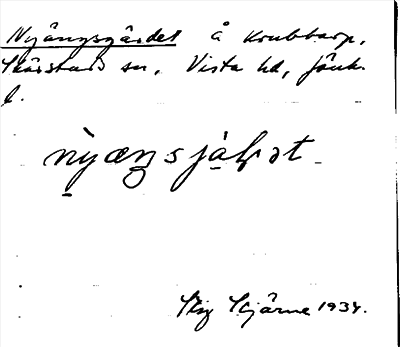 Nyängsgärdet å Krubbarp,
Skärstads sn, Vista hd, Jönk.
l.
nỳæŋsjạ̀ḷət
Stig Stjärne 1934.